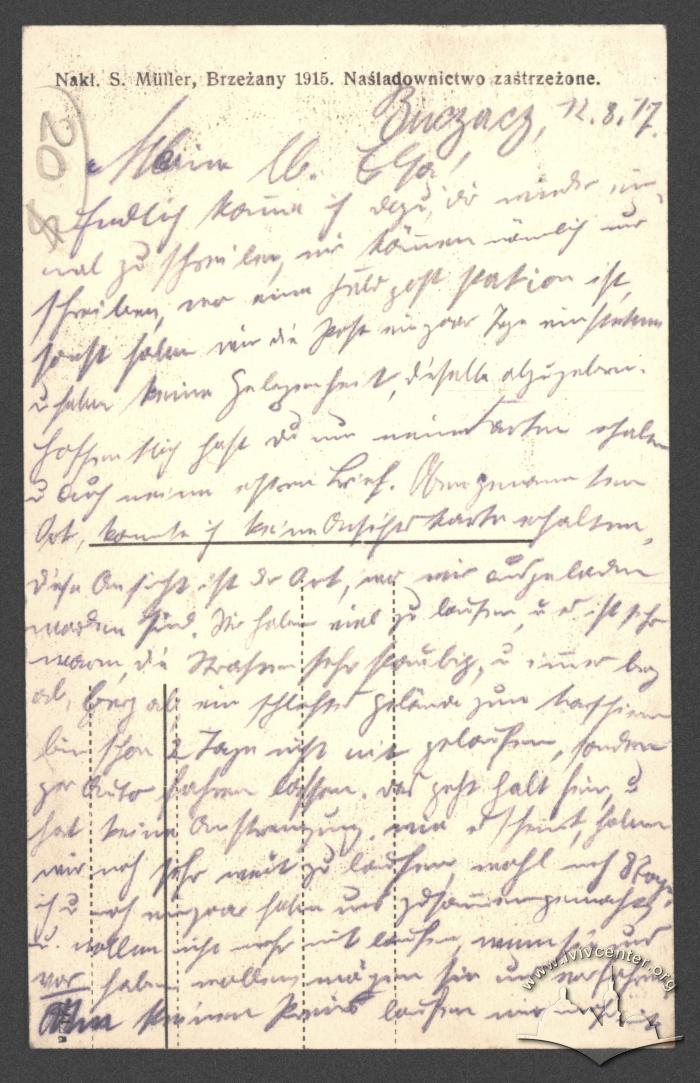 Nakł. S. Müller, Brzeżany 1915. Naśladownictwo zastrzeżone.
20
Buczacz, 12.8.17.
Meine lb.
Endlich komme ich dazu, dir wieder ein-
mal zu schreiben, wir können nämlich nur
schreiben, wo eine Feldpoststation ist,
sonst haben wir die Post ein paar Tage einstehen
u haben keine Gelegenheit, dieselbe abzugeben.
Hoffentlich hast du nun meine Karten erhalten
u auch meinen ersten Brief. Obengenannten
Ort, konnte ich keine Ansichtskarte erhalten,
diese Ansicht ist der Ort, wo wir ausgeladen
worden sind. Wir haben viel zu laufen, u es ist sehr
warm, die Strassen sehr staubig, u immer berg
ab, ein schlechtes Gelände zum marschieren
bin schon 2 Tage nicht mit gelaufen, sondern
per Auto fahren lassen. Das geht halt fein, u
hat keine Anstrengung. wie es scheint, haben
wir noch sehr weit zu laufen, wohl noch 8 Tage,
ich u noch ein paar haben uns zusammengemacht
u. wollen nicht mehr mit laufen, wenn sie uns
vor haben wollen mögen sie uns
keinen Preis laufen wir
www.lvivcenter.org